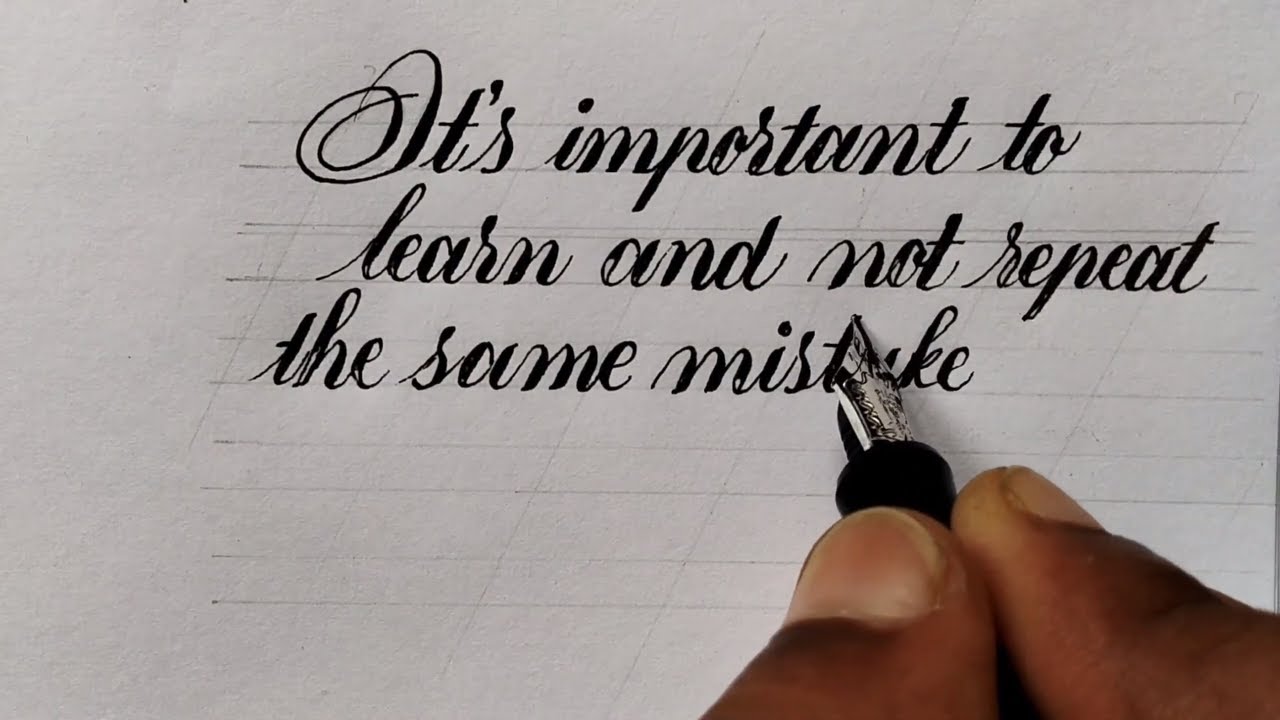 It's important to
learn and not repeat
the same mistake